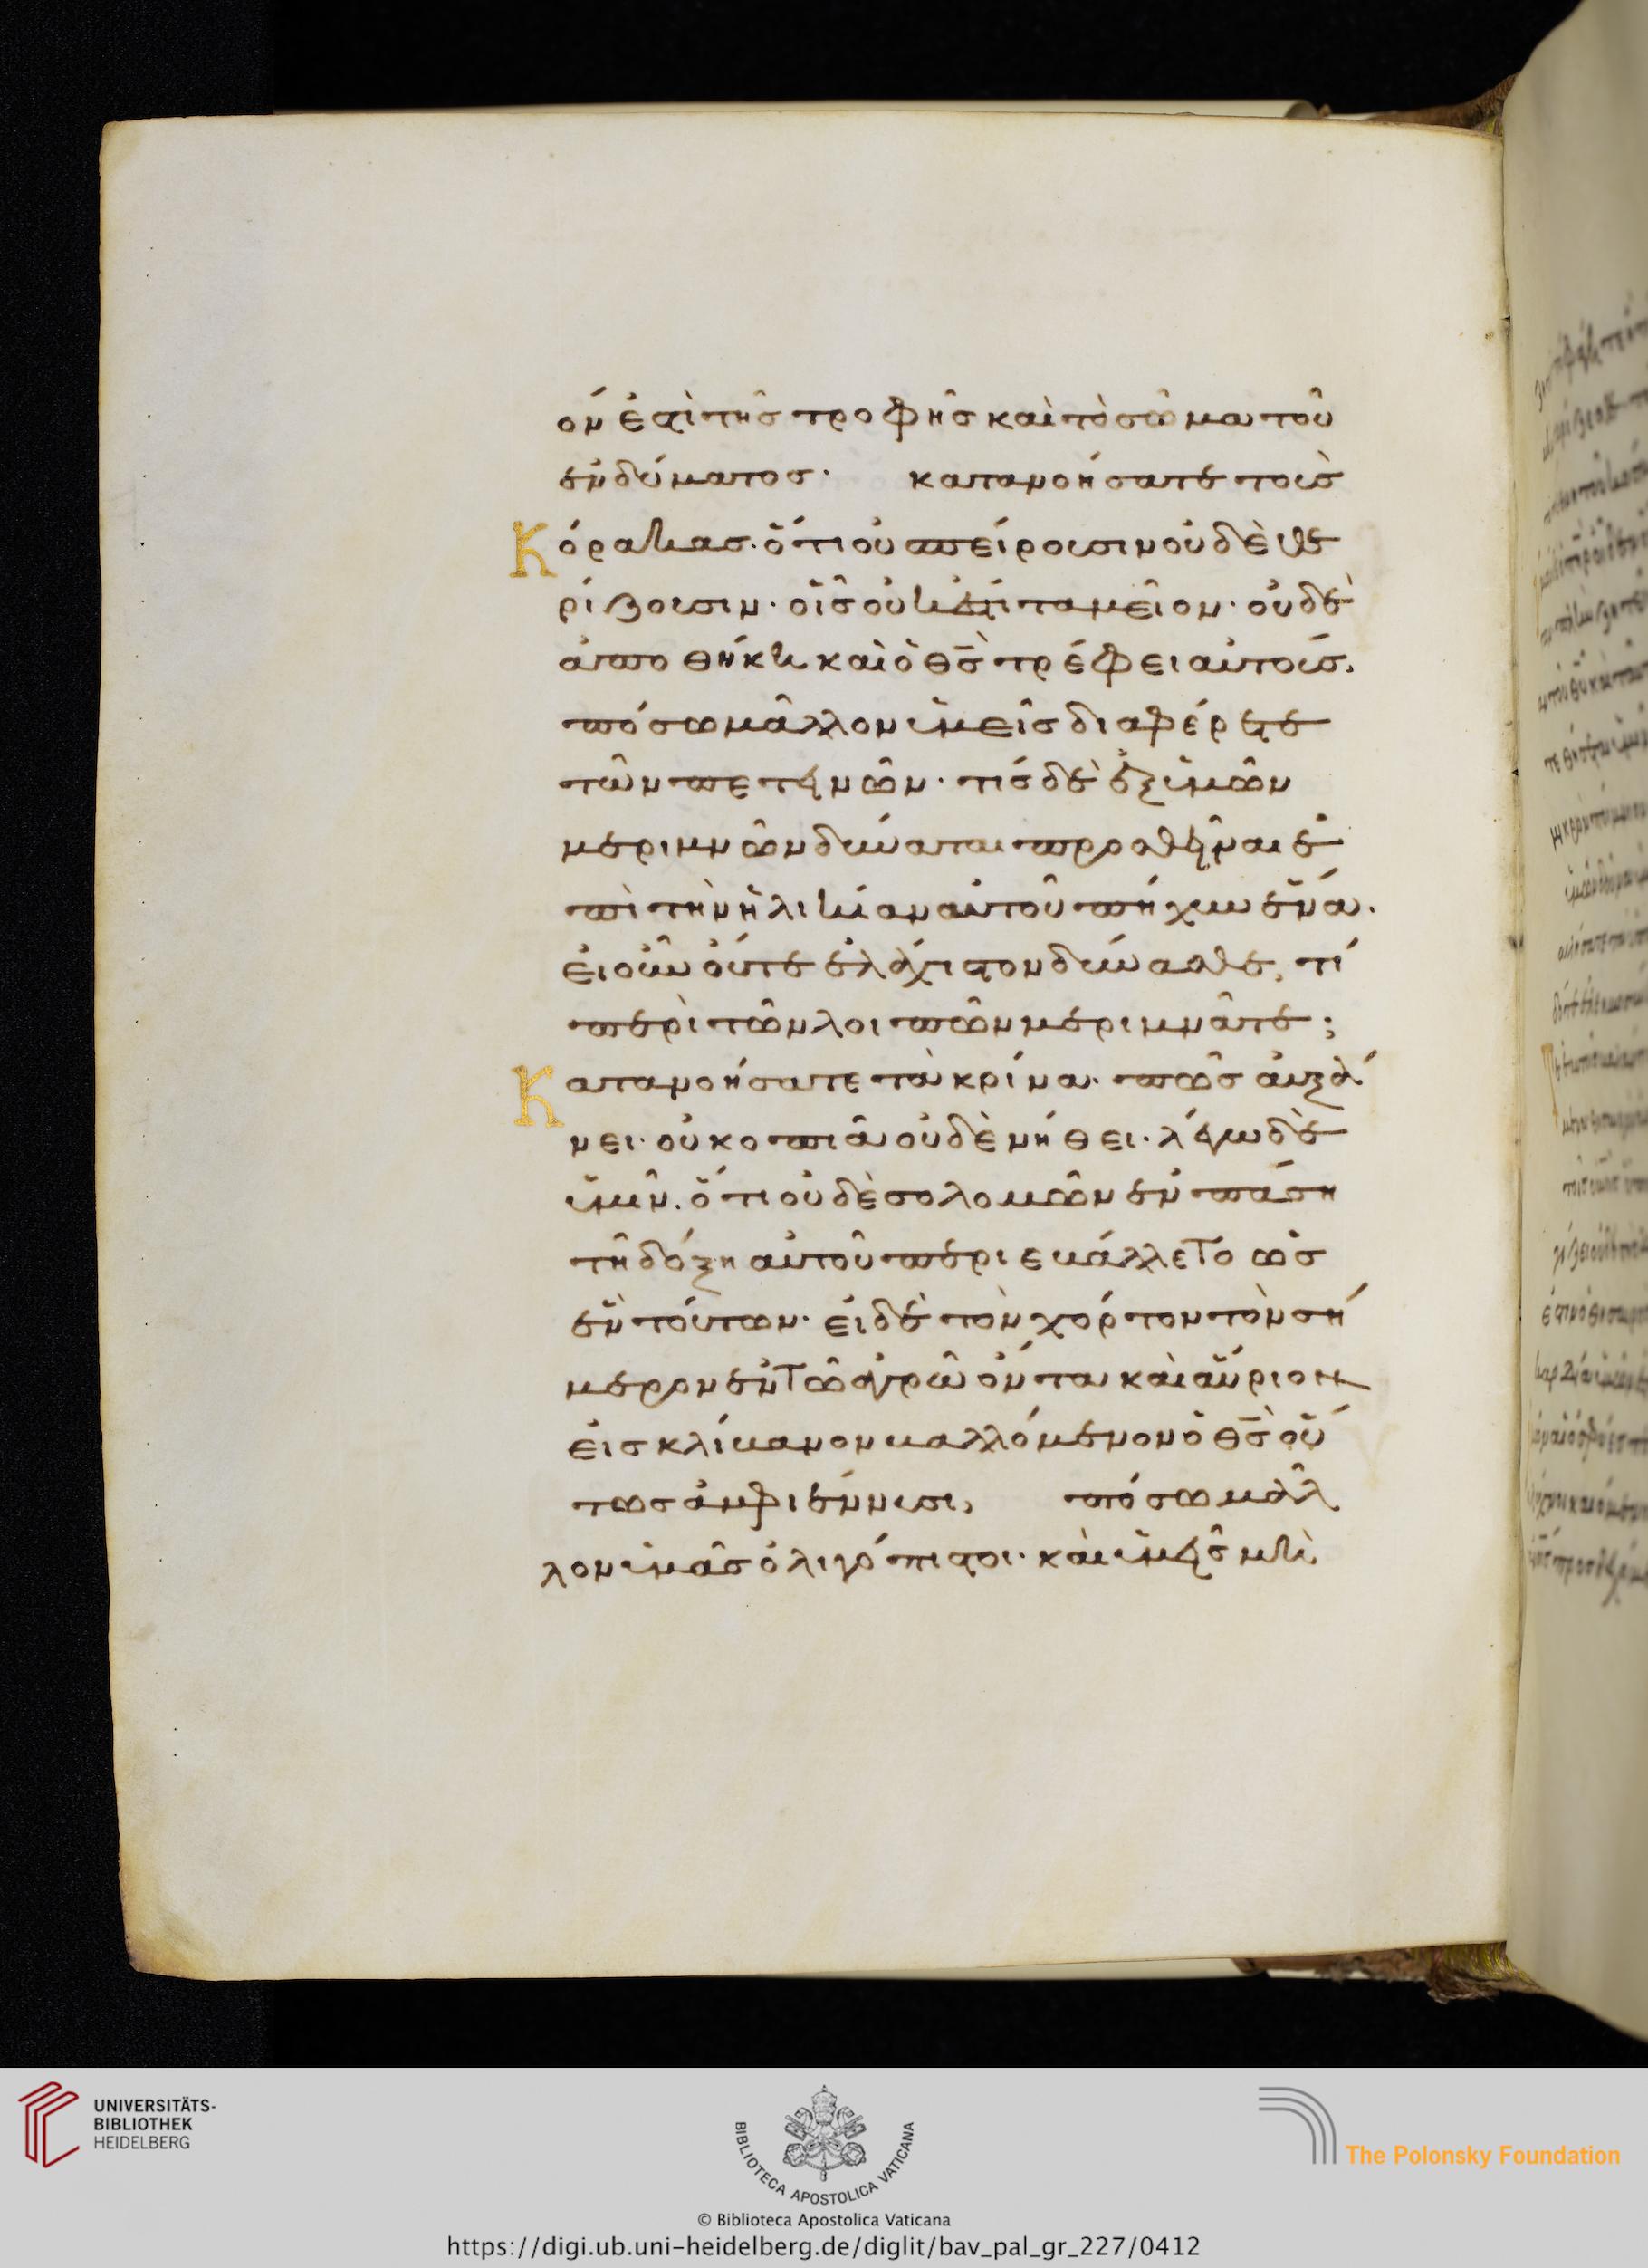 όν ἐστὶ τῆς τροφῆς καὶ τὸ σῶμα τοῦ
ἐνδύματος· κατανοήσατε τοὺς
Κόρακας· ὅτι οὐ σπείρουσιν οὐδὲ θε
ρίζουσιν· οἷς οὐκ ἔστι ταμεῖον· οὐδὲ
ἀποθήκη καὶ ὁ θς τρέφει αὐτούς,
πόσω μᾶλλον ὑμεῖς διαφέρετε
τῶν πετεινῶν· τίς δὲ ἐξ ὑμῶν
μεριμνῶν δύναται προσθεῖναι ἐ
πὶ τὴν ἡλικίαν αὐτοῦ πῆχυν ἕνα·
εἰ οὖν οὔτε ἐλάχιστον δύνασθε, τί
περὶ τῶν λοιπῶν μεριμνᾶτε;
Κατανοήσατε τὰ κρίνα· πῶς αὐξά
νει· οὐ κοπιᾶ οὐδὲ νήθει· λέγω δὲ
ὑμῖν. ὅτι οὐδὲ σολομῶν ἐν πάση
τῆ δόξη αὐτοῦ περιεβάλλετο ὡς
ἓν τούτων· εἰ δὲ τὸν χόρτον τὸν σή
μερον ἐν τῶ ἀγρῶ ὄντα καὶ αὔριον
εἰς κλίβανον βαλλόμενον ὁ θς οὕ
τως ἀμφιέννυσι, πόσω μᾶλ
λον ὑμᾶς ὀλιγόπιστοι· καὶ ὑμεῖς μὴ
UNIVERSITÄTS-
BIBLIOTHEK
HEIDELBERG
BIBLIOTECA APOSTOLICA VATICANA
The Polonsky Foundation
© Biblioteca Apostolica Vaticana
https://digi.ub.uni-heidelberg.de/diglit/bav_pal_gr_227/0412